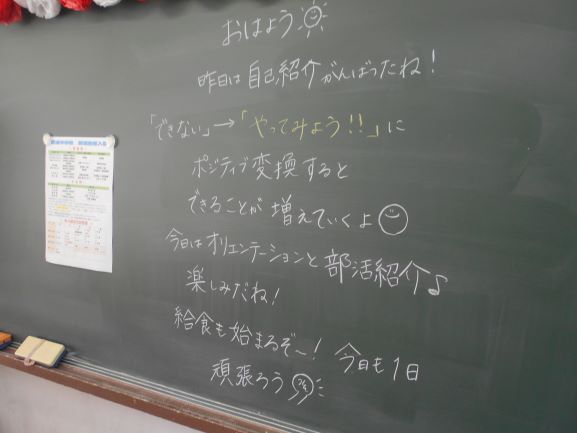 おはよう
昨日は自己紹介がんばったね！
「できない」→「やってみよう!!」に
ポジティブ変換すると
できることが増えていくよ
今日はオリエンテーションと部活紹介♪
楽しみだね！
給食も始まるぞ〜！今日も1日
頑張ろう